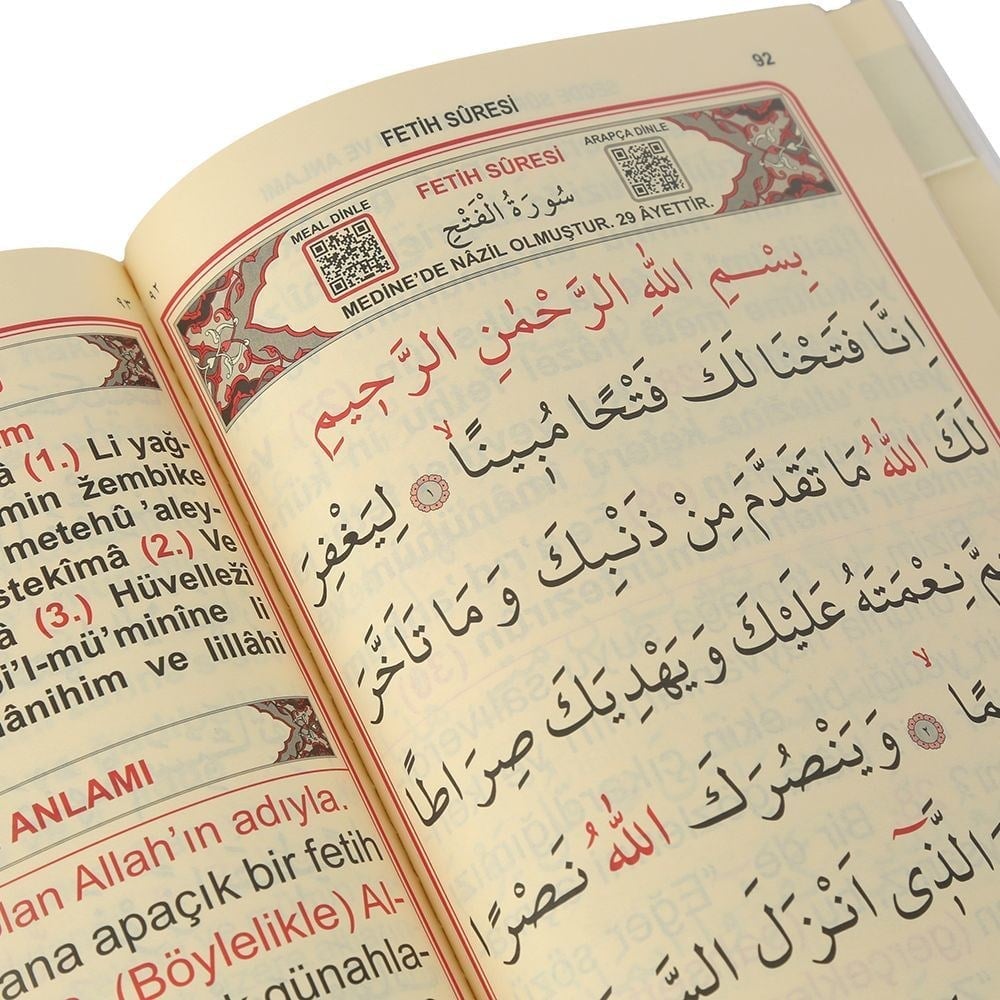 92
FETİH SÛRESİ
MEAL DİNLE
FETİH SÛRESİ
ARAPÇA DİNLE
سُورَةُ الْفَتْحِ
MEDİNE'DE NÂZİL OLMUŞTUR. 29 ÂYETTİR.
بِسْمِ اللّٰهِ الرَّحْمٰنِ الرَّح۪يمِ
اِنَّا فَتَحْنَا لَكَ فَتْحًا مُب۪ينًاۙ ﴿١﴾ لِيَغْفِرَ
لَكَ اللّٰهُ مَا تَقَدَّمَ مِنْ ذَنْبِكَ وَمَا تَاَخَّرَ
نِعْمَتَهُ عَلَيْكَ وَيَهْدِيَكَ صِرَاطًا
﴿٢﴾ وَيَنْصُرَكَ اللّٰهُ نَصْرًا
الَّذ۪ٓي اَنْزَلَ
(1.) Li yağ-
min žembike
metehû 'aley-
stekîmâ (2.) Ve
(3.) Hüvelležî
bi'l-mü'minîne li
ânihim ve lillâhi
ANLAMI
olan Allah'ın adıyla.
ana apaçık bir fetih
(Böylelikle) Al-
günahla-